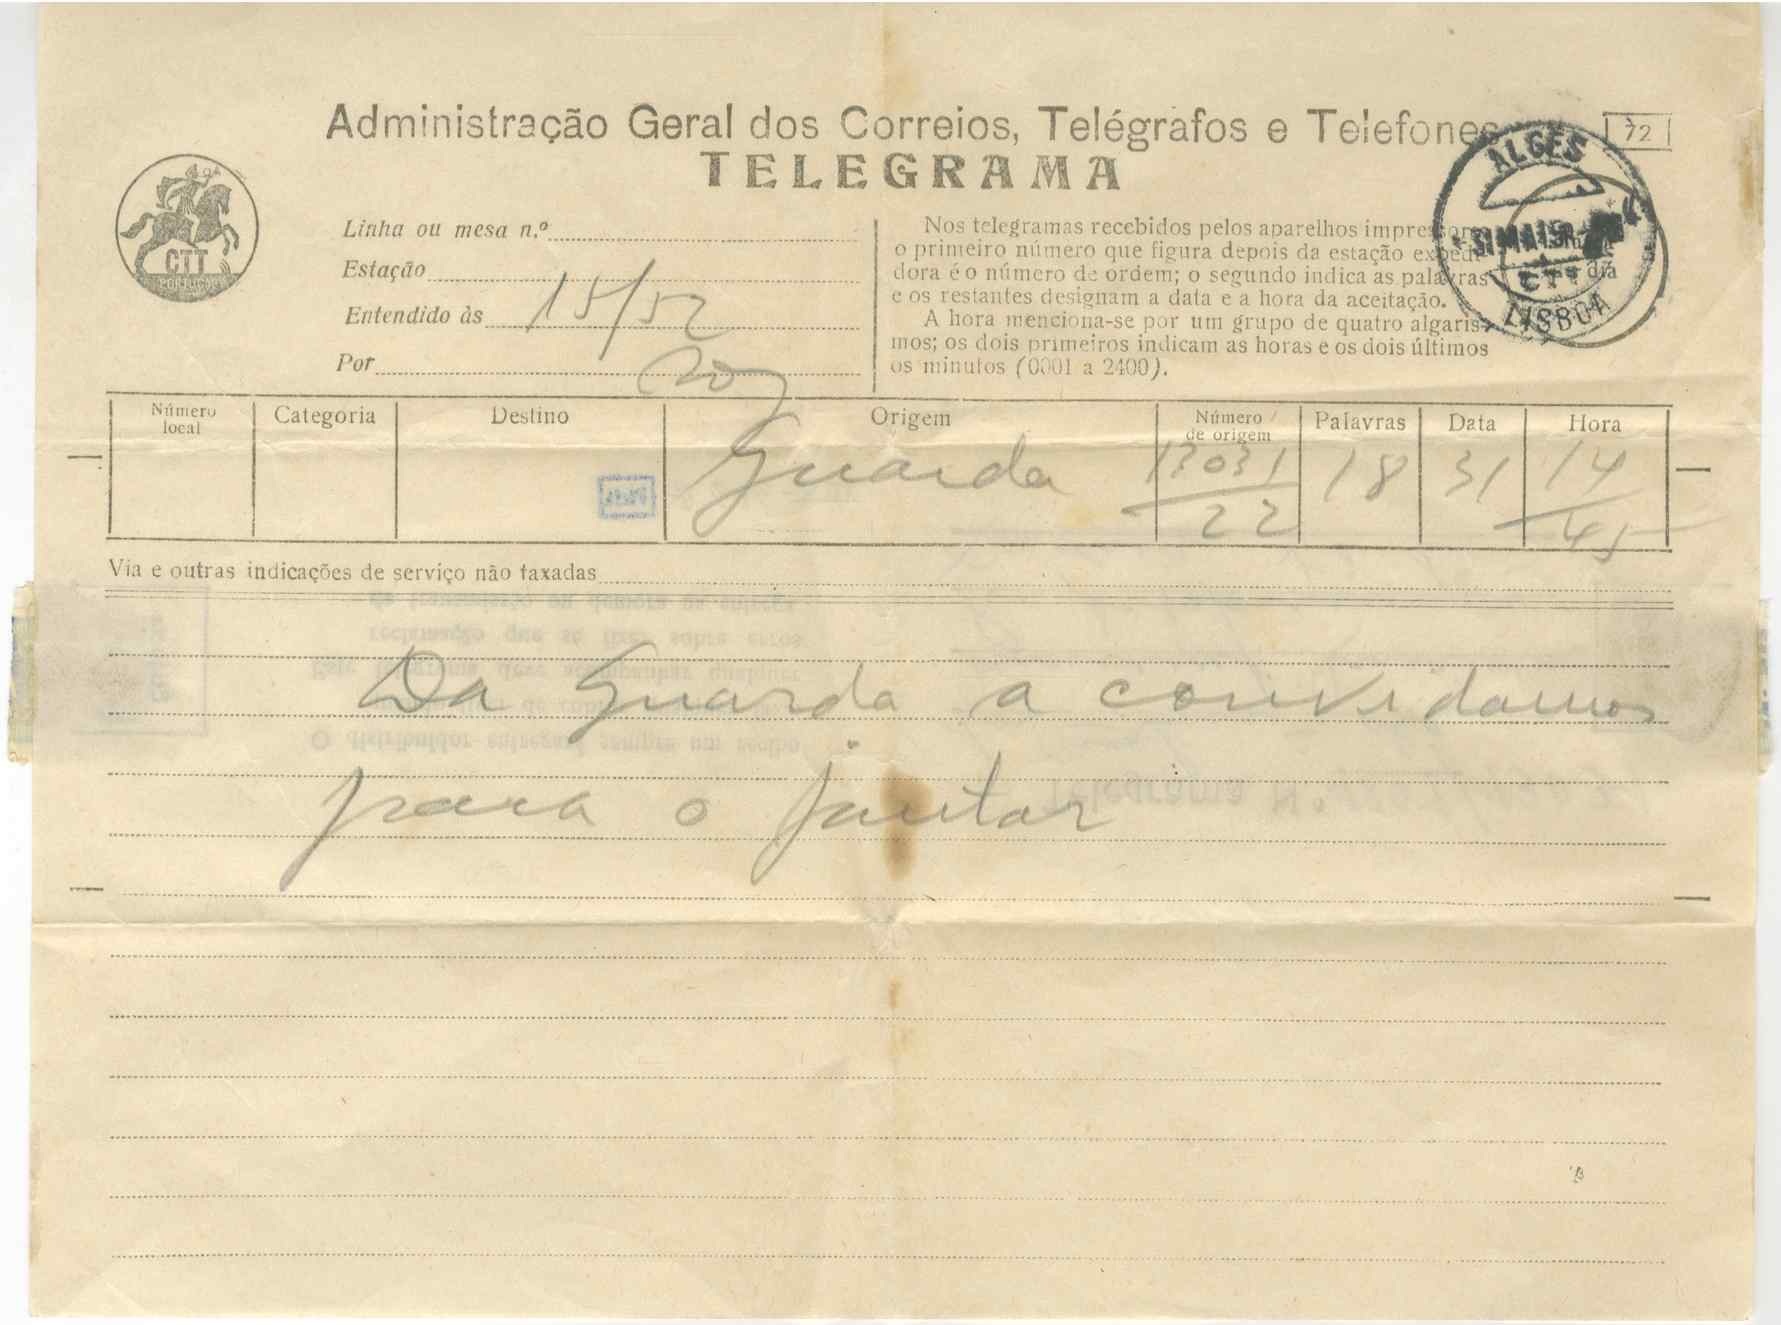 Administração Geral dos Correios, Telégrafos e Telefones
72
TELEGRAMA
ALGÉS
CTT
LISBOA
CTT
PORTUGAL
Linha ou mesa n.º
Estação
Entendido às 15/52
Por
Nos telegramas recebidos pelos aparelhos impressores
o primeiro número que figura depois da estação expedi-
dora é o número de ordem; o segundo indica as palavras
e os restantes designam a data e a hora da aceitação.
A hora menciona-se por um grupo de quatro algaris-
mos; os dois primeiros indicam as horas e os dois últimos
os minutos (0001 a 2400).
Número local
Categoria
Destino
Origem
Número de origem
Palavras
Data
Hora
Guarda 13031/22 18 31 14/45
Via e outras indicações de serviço não taxadas
Da Guarda a convidamos
para o jantar